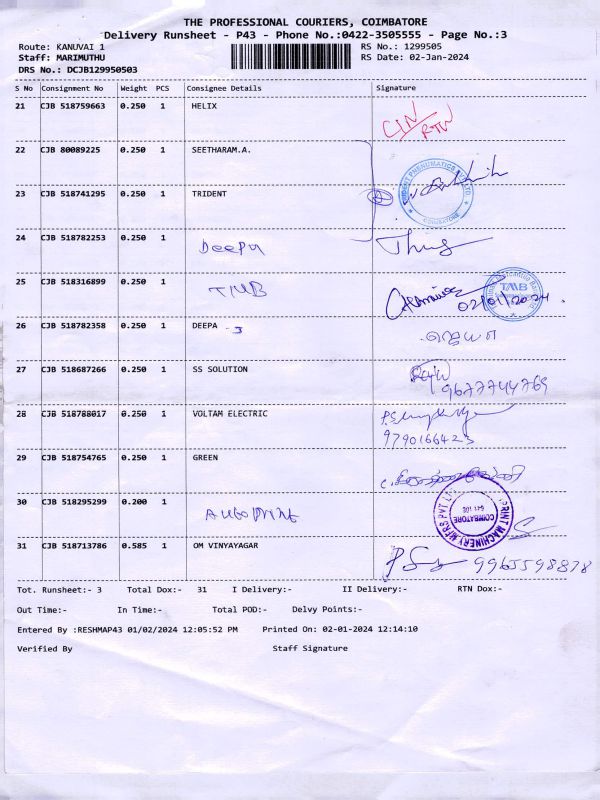 THE PROFESSIONAL COURIERS, COIMBATORE
Delivery Runsheet - P43 - Phone No.:0422-3505555 - Page No.:3
Route: KANUVAI 1 RS No.: 1299505
Staff: MARIMUTHU RS Date: 02-Jan-2024
DRS No.: DCJB129950503
S No Consignment No Weight PCS Consignee Details Signature
21 CJB 518759663 0.250 1 HELIX
22 CJB 80089225 0.250 1 SEETHARAM.A.
23 CJB 518741295 0.250 1 TRIDENT
COIMBATORE
24 CJB 518782253 0.250 1 Deepa
25 CJB 518316899 0.250 1 TMB TMB
02/01/2024.
26 CJB 518782358 0.250 1 DEEPA - 3
27 CJB 518687266 0.250 1 SS SOLUTION
9677744769
28 CJB 518788017 0.250 1 VOLTAM ELECTRIC
9790166423
29 CJB 518754765 0.250 1 GREEN
30 CJB 518295299 0.200 1 AutoPrint
COIMBATORE
31 CJB 518713786 0.585 1 OM VINYAYAGAR 9965598878
Tot. Runsheet:- 3 Total Dox:- 31 I Delivery:- II Delivery:- RTN Dox:-
Out Time:- In Time:- Total POD:- Delvy Points:-
Entered By :RESHMAP43 01/02/2024 12:05:52 PM Printed On: 02-01-2024 12:14:10
Verified By Staff Signature